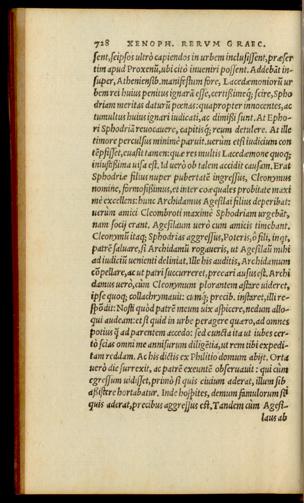 728 XENOPH. RERVM GRAEC.
sent, seipsos ultrò capiendos in urbem inclusissent, præser
tim apud Proxenũ, ubi citò inueniri possent. Addebãt in-
super, Atheniensib. manifestum fore, Lacedæmoniorũ ur
bem rei huius penitus ignarã esse, certißimeq́; scire, Spho
driam meritas daturũ pœnas: quapropter innocentes, ac
tumultus huius ignari iudicati, ac dimißi sunt. At Epho-
ri Sphodriã reuocauere, capitisq́; reum detulere. At ille
timore perculsus minimè paruit. uerùm etsi iudicium con
tẽpsisset, euasit tamen: quæ res multis Lacedæmone quoq;
iniustißima uisa est. Id uerò ob talem accidit causam. Erat
Sphodriæ filius nuper pubertatẽ ingressus, Cleonymus
nomine, formosißimus, et inter coæquales probitate maxi
mè excellens: hunc Archidamus Agesilai filius deperibat:
uerùm amici Cleombroti maximè Sphodriam urgebãt,
nam socij erant. Agesilaum uerò cum amicis timebant.
Cleonymũ itaq; Sphodrias aggressus, Poteris, ô fili, inqt,
patrẽ saluare, si Archidamũ rogaueris, ut Agesilaũ mihi
ad iudiciũ uenienti deliniat. Ille his auditis, Archidamum
cõpellare, ac ut patri succurreret, precari ausus est. Archi
damus uerò, cùm Cleonymum plorantem astare uideret,
ipse quoq; collachrymauit: cumq́; precib. instaret, illi re-
spõdit: Nosti quòd patrẽ meum uix aspicere, nedum allo-
qui audeam: et si quid in urbe peragere quæro, ad omnes
potius q̃ ad parentem accedo: sed cuncta ita ut iubes cer-
tò scias omni me annisurum diligẽtia, ut rem tibi expedi-
tam reddam. Ac his dictis ex Philitio domum abijt. Orta
uerò die surrexit, ac patrẽ exeuntẽ obseruauit: qui cùm
egressum uidisset, primò si quis ciuium aderat, illum sib
aßistere hortabatur. Inde hospites, demum famulorum si
quis aderat, precibus aggressus est. Tandem cùm Agesi-
laus ab